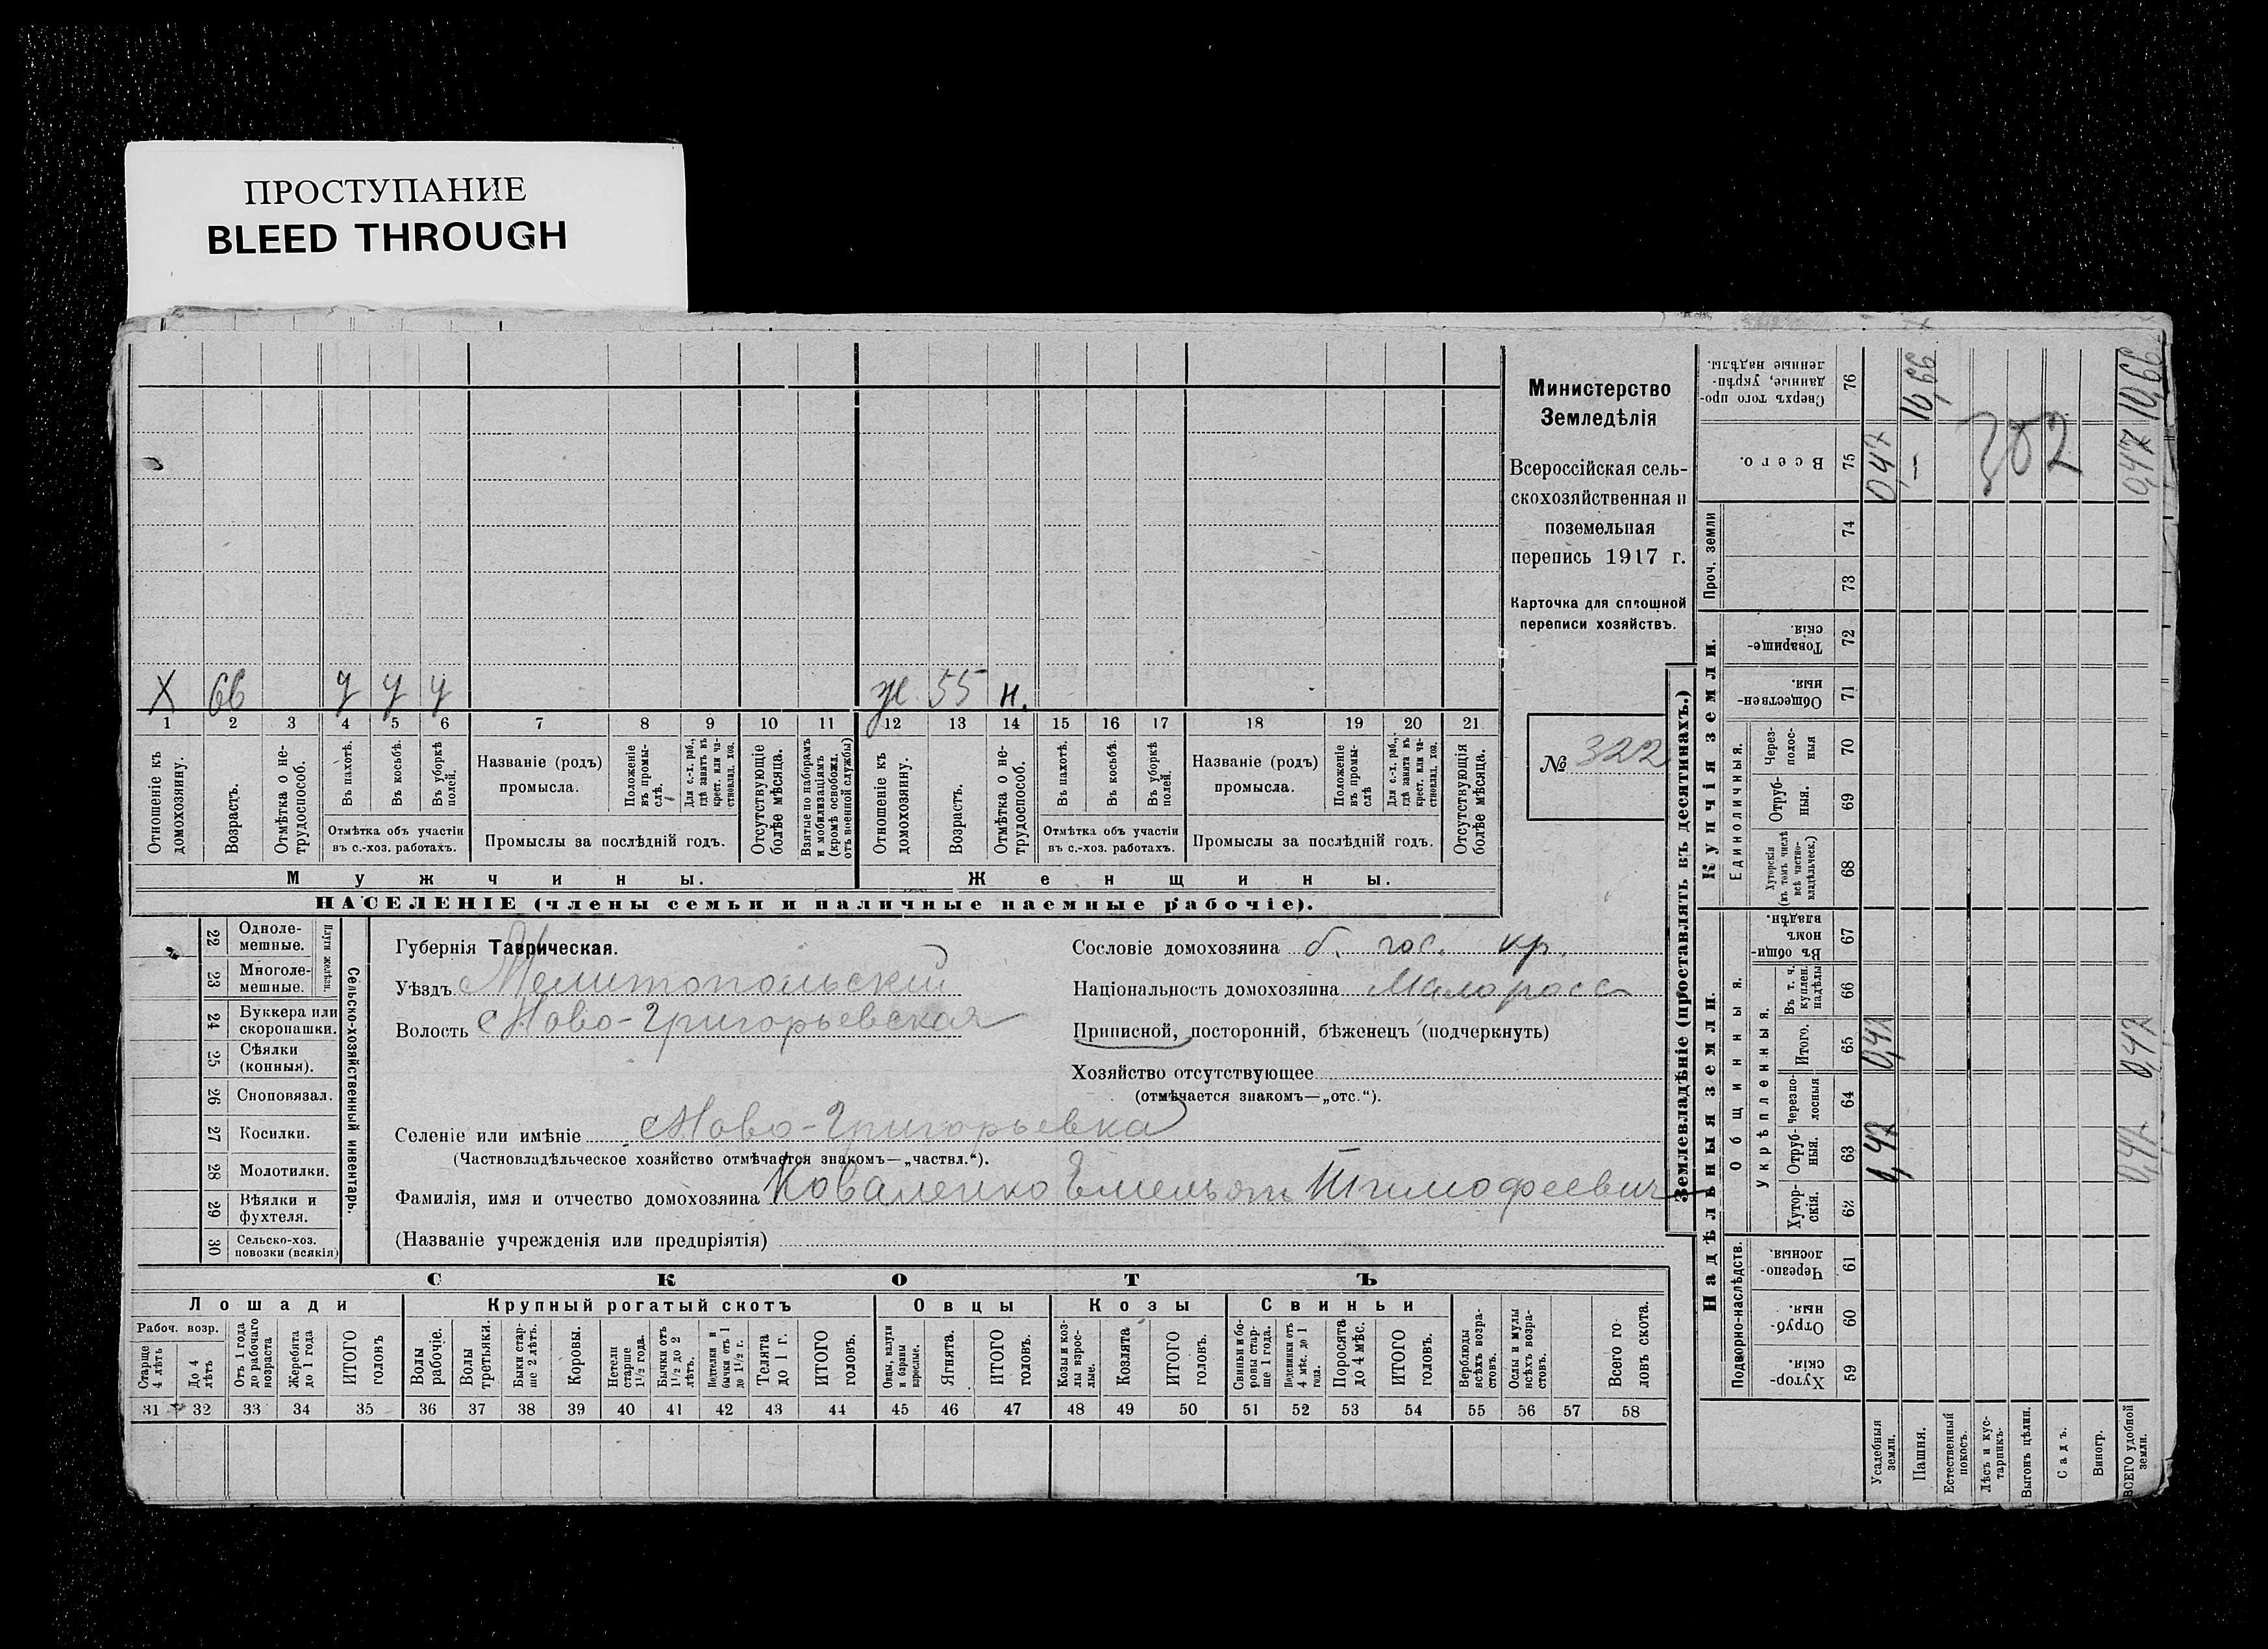 ПРОСТУПАНИЕ
BLEED THROUGH
Х 66 у у у ж 55 н.
1 2 3 4 5 6 7 8 9 10 11 12 13 14 15 16 17 18 19 20 21
Отношеніе къ домохозяину.
Возрастъ.
Отмѣтка о не-
трудоспособ.
Въ пахотѣ.
Въ косьбѣ.
Въ уборкѣ полей.
Отмѣтка объ участіи
въ с.-хоз. работахъ.
Названіе (родъ)
промысла.
Положеніе въ промы-
слѣ.
Для с.-х. раб., гдѣ занятъ въ крест. или ча-
стновлад. хоз.
Промыслы за послѣдній годъ.
Отсутствующіе болѣе мѣсяца.
Взятые по наборамъ и мобилизаціямъ (кромѣ освобожд. отъ военной службы)
Отношеніе къ домохозяину.
Возрастъ.
Отмѣтка о не-
трудоспособ.
Въ пахотѣ.
Въ косьбѣ.
Въ уборкѣ полей.
Отмѣтка объ участіи
въ с.-хоз. работахъ.
Названіе (родъ)
промысла.
Положеніе въ промы-
слѣ
Для с.-х. раб., гдѣ занята въ крест. или ча-
стновлад. хоз.
Промыслы за послѣдній годъ.
Отсутствующія болѣе мѣсяца.
Мужчины.
Женщины.
НАСЕЛЕНІЕ (члены семьи и наличные наемные рабочіе).
Министерство
Земледѣлія
Всероссійская сель-
скохозяйственная и
поземельная
перепись 1917 г.
Карточка для сплошной
переписи хозяйствъ.
№ 322
22 Одноле-
мешные.
23 Многоле-
мешные.
Плуги желѣзн.
24 Буккера или
скоропашки.
25 Сѣялки
(конныя).
26 Сноповязал.
27 Косилки.
28 Молотилки.
29 Вѣялки и
фухтеля.
30 Сельско-хоз.
повозки (всякія)
Сельско-хозяйственный инвентарь.
Губернія Таврическая.
Уѣздъ Мелитопольскій
Волость Ново-Григорьевская
Селеніе или имѣніе Ново-Григорьевка
(Частновладѣльческое хозяйство отмѣчается знакомъ—„частвл.“).
Фамилія, имя и отчество домохозяина Коваленко Емельян Тимофеевич
(Названіе учрежденія или предпріятія)
Сословіе домохозяина б. гос. кр.
Національность домохозяина Малоросс
Приписной, посторонній, бѣженецъ (подчеркнуть)
Хозяйство отсутствующее
(отмѣчается знакомъ—„отс.“).
СКОТЪ
Лошади
Крупный рогатый скотъ
Овцы
Козы
Свиньи
Рабоч. возр.
Старше 4 лѣтъ
До 4 лѣтъ
Отъ 1 года до рабочаго возраста
Жеребята до 1 года
ИТОГО головъ
Волы рабочіе.
Волы третьяки.
Быки стар-
ше 2 лѣтъ.
Коровы.
Нетели старше 1½ года.
Бычки отъ 1½ до 2 лѣтъ.
Нетелки и бычки отъ 1 до 1½ г.
Телята до 1 г.
ИТОГО головъ.
Овцы, валухи и бараны взрослые.
Ягнята.
ИТОГО головъ.
Козы и коз-
лы взрос-
лые.
Козлята
ИТОГО головъ.
Свиньи и бо-
ровы стар-
ше 1 года.
Подсвинки отъ 4 мѣс. до 1 года.
Поросята до 4 мѣс.
ИТОГО головъ.
Верблюды всѣхъ возра-
стовъ.
Ослы и мулы всѣхъ возра-
стовъ.
Всего го
ловъ скота.
31 32 33 34 35 36 37 38 39 40 41 42 43 44 45 46 47 48 49 50 51 52 53 54 55 56 57 58
Землевладѣніе (проставлять въ десятинахъ.)
Надѣльныя земли.
Купчія земли.
Проч. земли
Подворно-наслѣдств.
Общинныя.
Укрѣпленныя.
Единоличныя.
Хутор-
скія. 59
Отруб-
ныя. 60
Черезпо-
лосныя. 61
Хутор-
скія. 62
Отруб-
ныя. 63
Черезпо-
лосныя 64
Итого. 65
Въ т. ч. куплен. надѣлы 66
Въ общин-
номъ владѣн. 67
Хуторскія (въ томъ числѣ всѣ частно-
владѣльческ.) 68
Отруб-
ныя. 69
Через-
полос-
ныя 70
Обществен-
ныя. 71
Товарище-
скія. 72
73
74
Всего. 75
Сверхъ того про-
данные, укрѣп-
ленные надѣлы. 76
Усадебныя земли. 0,47 0,47 0,47
Пашня. – 10,66
Естественный покосъ.
Лѣсъ и кус-
тарникъ.
Выгонъ цѣлин.
Садъ.
Виногр.
ВСЕГО удобной земли. 0,47 0,47 0,47 10,66